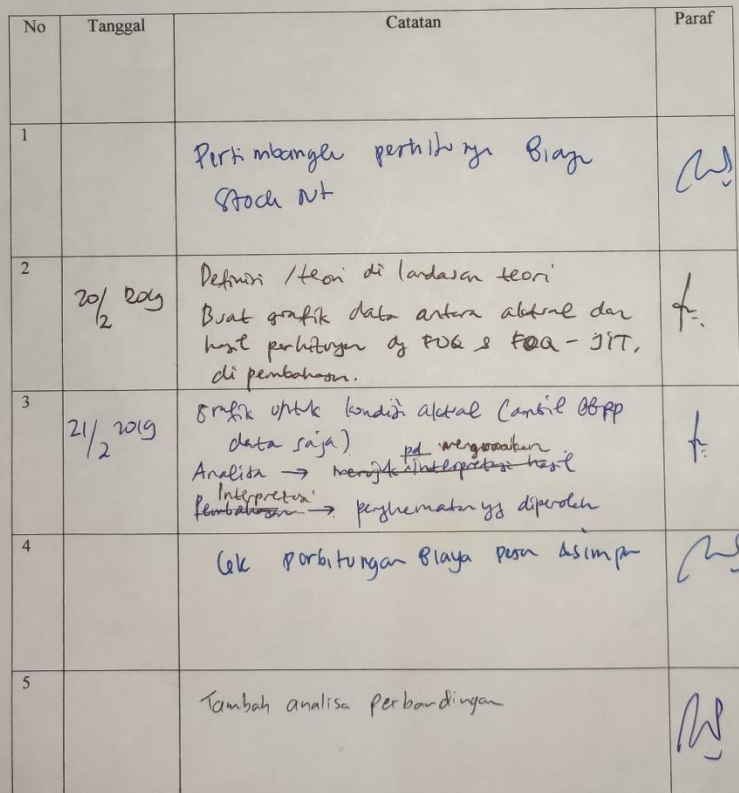 No Tanggal Catatan Paraf
1
Pertimbangkan perhitungan Biaya
Stock
2
20/2 2019
Definisi / teori di landasan teori
Buat grafik data antara aktual dan
hasil perhitungan dg & - JIT,
di pembahasan.
3
21/2 2019
Grafik untuk kondisi aktual (ambil
data saja)
pd
Analisa →
Interpretasi
Pembahasan → penghematan yg diperoleh
4
Cek Perhitungan Biaya pesan
5
Tambah analisa perbandingan